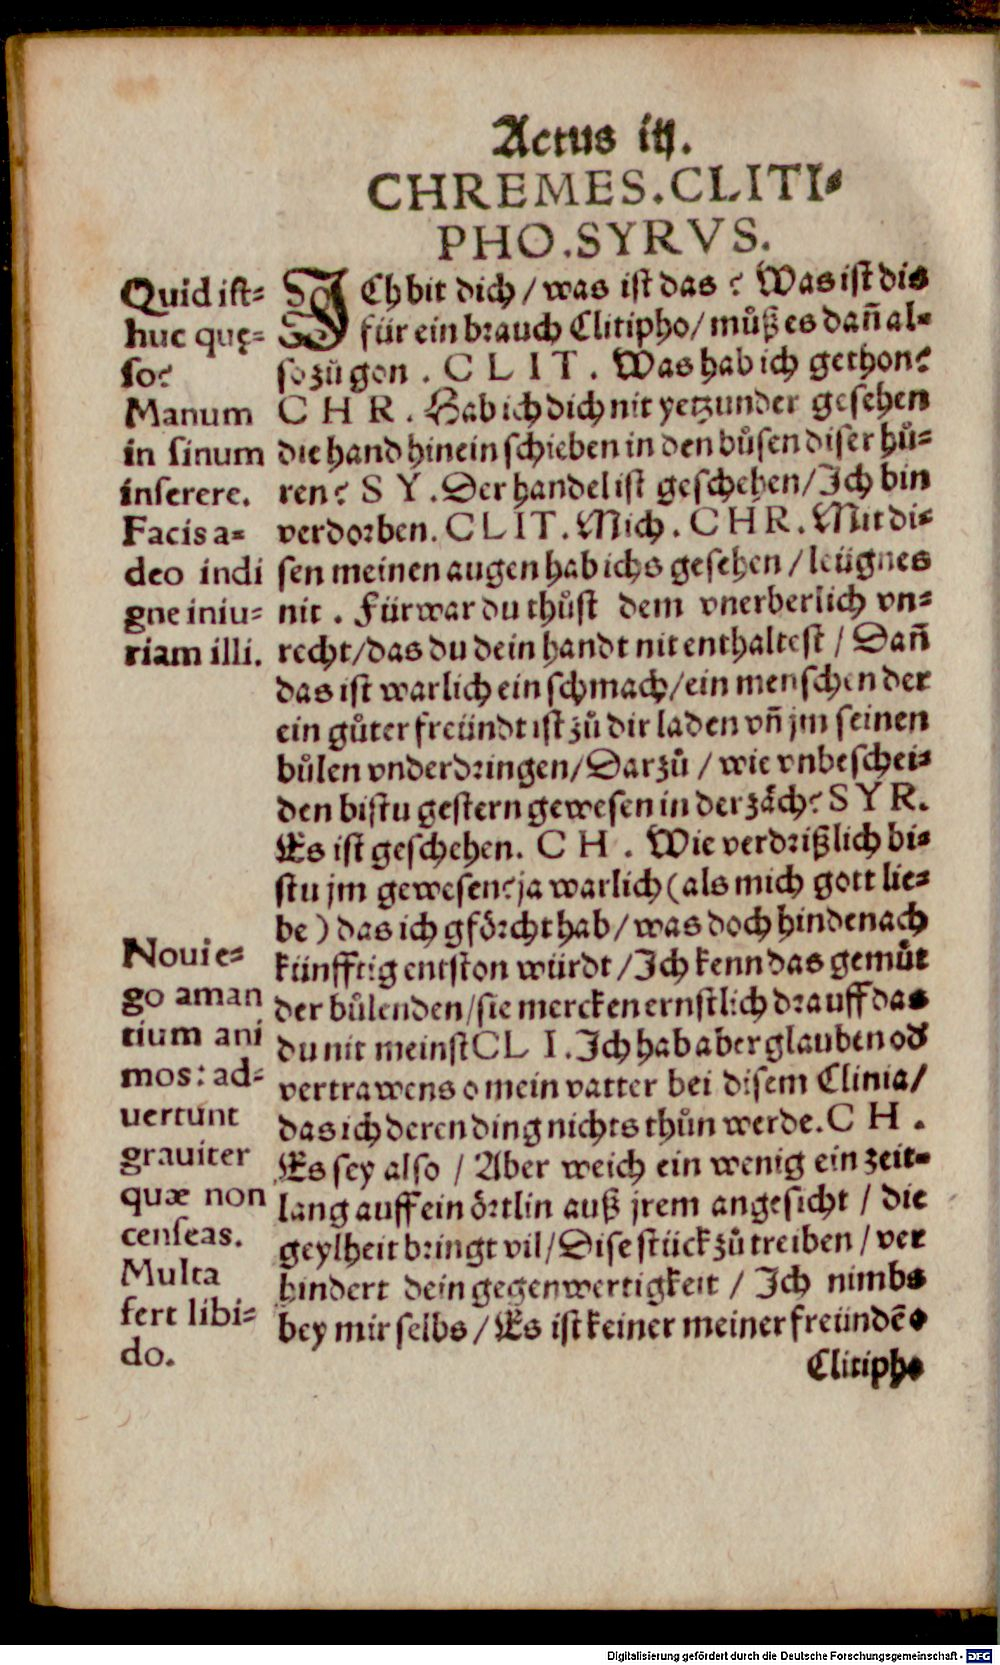 Actus iij.
CHREMES. CLITI-
PHO. SYRVS.
Quid ist-
huc quę-
so?
Manum
in sinum
inserere.
Facis a-
deo indi
gne iniu-
riam illi.
Noui e-
go aman
tium ani
mos: ad-
uertunt
grauiter
quæ non
censeas.
Multa
fert libi-
do.
ICh bit dich / was ist das? Was ist dis
für ein brauch Clitipho / můß es dañ al-
so zů gon. CLIT. Was hab ich gethon?
CHR. Hab ich dich nit yetzunder gesehen
die hand hinein schieben in den bůsen diser hů-
ren? SY. Der handel ist geschehen / Ich bin
verdorben. CLIT. Mich. CHR. Mit di-
sen meinen augen hab ichs gesehen / leügnes
nit. Fürwar du thůst dem vnerberlich vn-
recht / das du dein handt nit enthaltest / Dañ
das ist warlich ein schmach / ein menschen der
ein gůter freündt ist zů dir laden vñ jm seinen
bůlen vnderdringen / Darzů / wie vnbeschei-
den bistu gestern gewesen in der zäch? SYR.
Es ist geschehen. CH. Wie verdrißlich bi-
stu jm gewesen? ja warlich (als mich gott lie-
be) das ich gförcht hab / was doch hindenach
künfftig entston würdt / Ich kenn das gemůt
der bůlenden / sie mercken ernstlich drauff das
du nit meinst CLI. Ich hab aber glauben od
vertrawens o mein vatter bei disem Clinia /
das ich deren ding nichts thůn werde. CH.
Es sey also / Aber weich ein wenig ein zeit-
lang auff ein örtlin auß jrem angesicht / die
geylheit bringt vil / Dise stück zů treiben / ver
hindert dein gegenwertigkeit / Ich nimbs
bey mir selbs / Es ist keiner meiner freündē
Clitipho
Digitalisierung gefördert durch die Deutsche Forschungsgemeinschaft - DFG